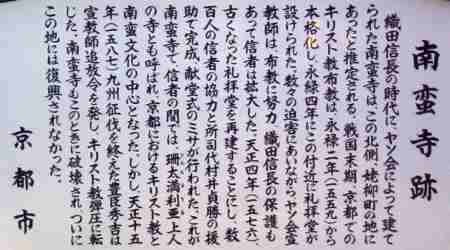 南蛮寺跡
織田信長の時代に、ヤソ会によって建て
られた南蛮寺は、この北側、姥柳町の地に
あったと推定される。戦国末期、京都での
キリスト教布教は、永禄二年(一五五九)から
本格化し、永禄四年にこの付近に礼拝堂が
設けられた。数々の迫害にあいながらヤソ会宣
教師は、布教に努力、織田信長の保護も
あって信者は拡大した。天正四年(一五七六)、
古くなった礼拝堂を再建することにし、数
百人の信者の協力と所司代村井貞勝の援
助で完成、献堂式のミサが行われた。これが
南蛮寺で、信者の間では、珊太満利亜上人
の寺とも呼ばれ、京都におけるキリスト教と
南蛮文化の中心となった。しかし、天正十五
年(一五八七)九州征伐を終えた豊臣秀吉は
宣教師追放令を発し、キリスト教弾圧に転
じた。南蛮寺もこのときに破壊され、ついに
この地には復興されなかった。
京都市